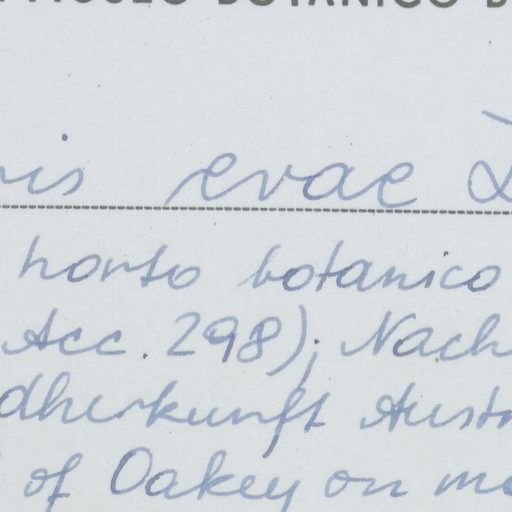 MUSEO BOTANICO B
ris evae L
horto botanico
Acc. 298); Nach
dherkunft Austr
of Oakey on m